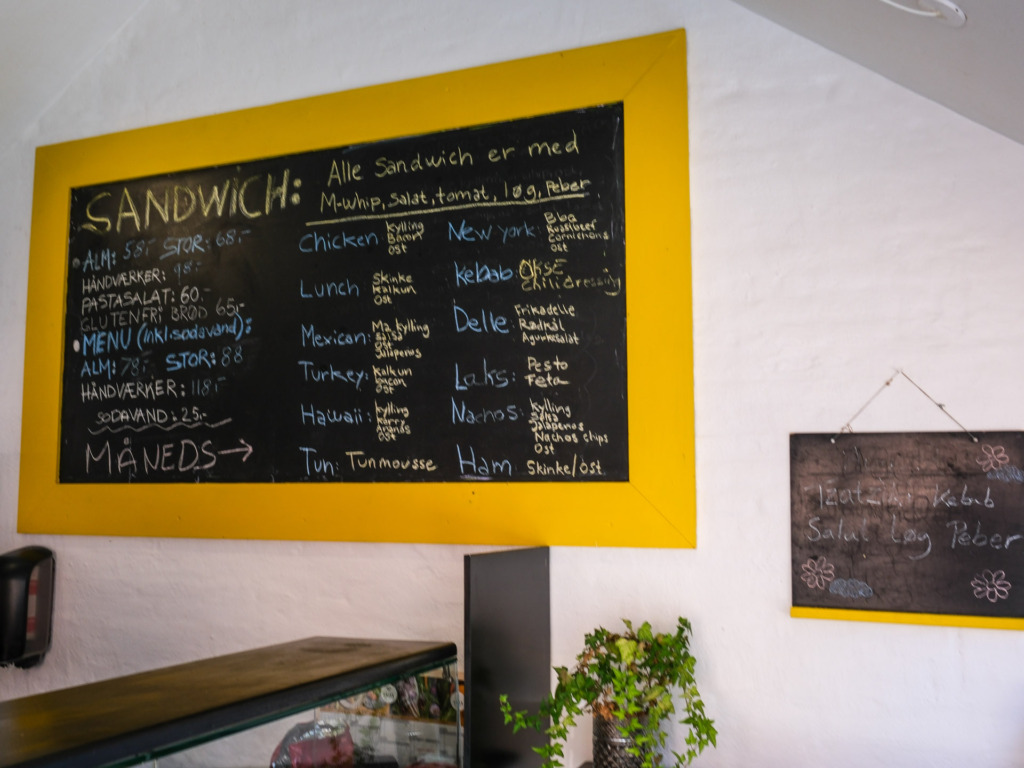 SANDWICH:
ALM: 58.- STOR: 68.-
HÅNDVÆRKER: 98.-
PASTASALAT: 60.-
GLUTENFRI BRØD 65.-
MENU (inkl.sodavand):
ALM: 78.- STOR: 88
HÅNDVÆRKER: 118.-
SODAVAND: 25.-
MÅNEDS →
Alle Sandwich er med
M-whip, Salat, tomat, løg, Peber
Chicken: Kylling
Bacon
Ost
Lunch Skinke
Kalkun
Ost
Mexican: Ma. kylling
Salsa
Ost
Jalapenos
Turkey: Kalkun
Bacon
Ost
Hawaii: Kylling
Karry
Ananas
Ost
Tun: Tunmousse
New york: Bbq
Roastbeef
Cornichons
Ost
Kebab: OKSE
Chilidressing
Delle: Frikadelle
Rødkål
Agurkesalat
Laks: Pesto
Feta
Nachos: Kylling
Salsa
Jalapenos
Nachos chips
Ost
Ham: Skinke/ost
Kebab
Salat løg Peber